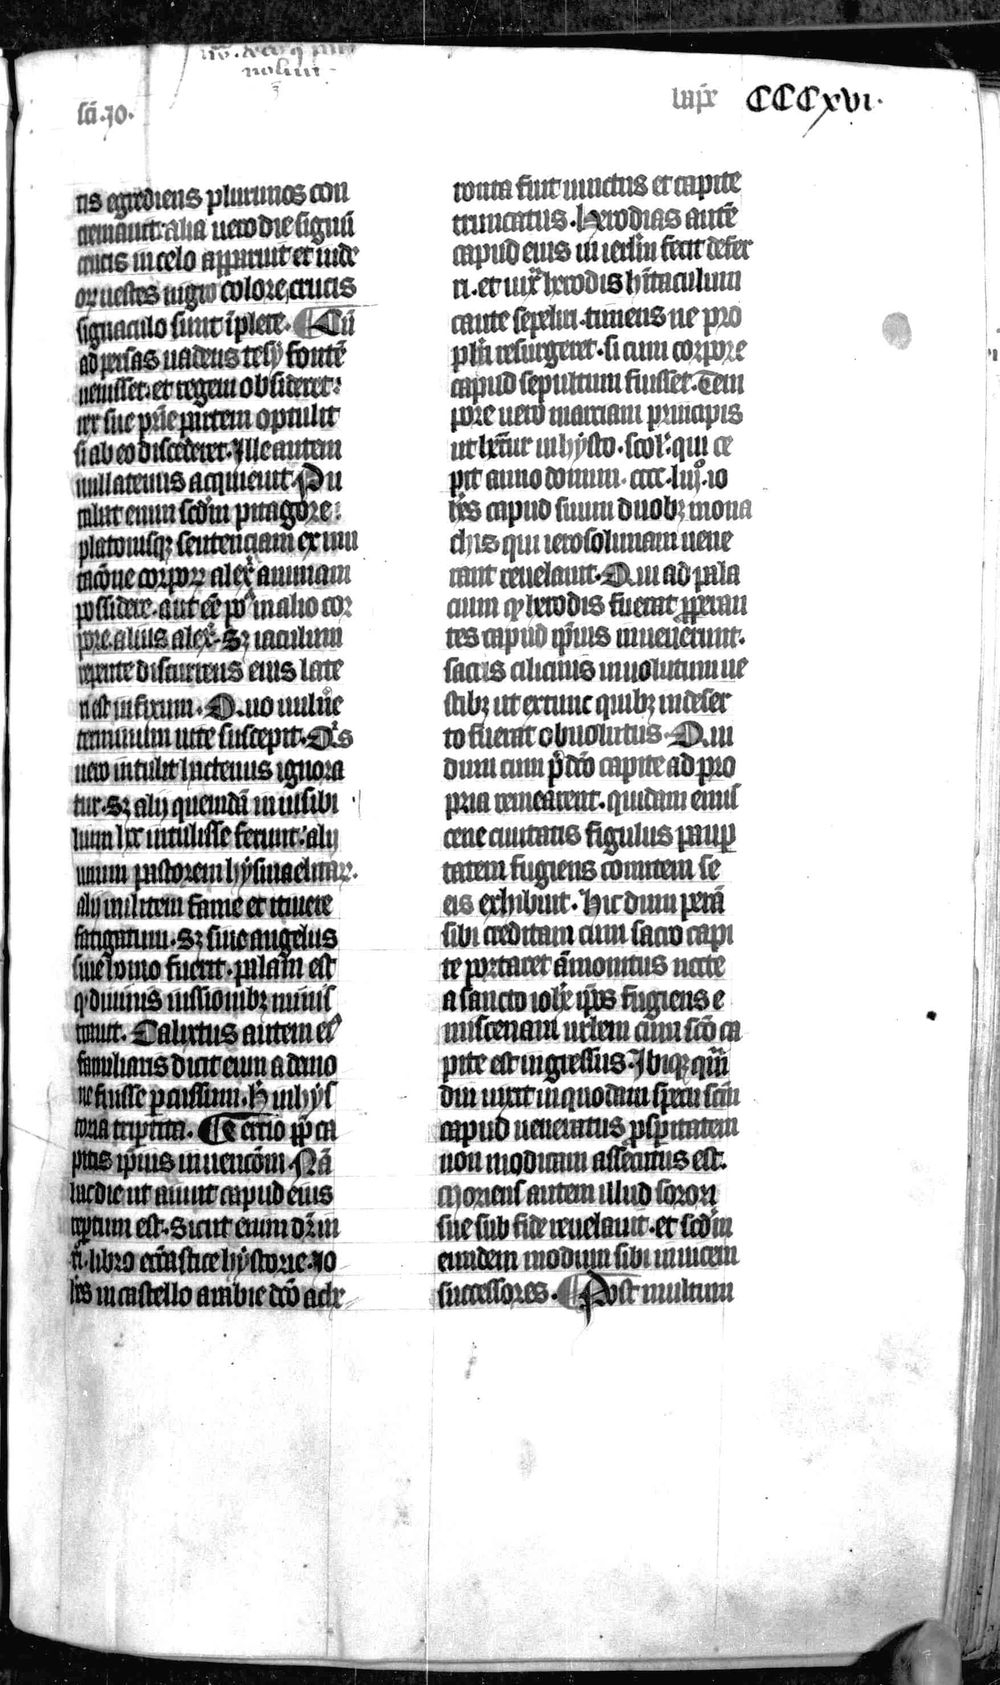 sci. Jo.
bapt̄ CCCxvi.
tis egrediens plurimos con
cremauit: alia uero die signū
crucis in celo apparuit et iude
orꝝ uestes nigro colore crucis
signaculo sunt īplete. Cū
ad persas uadens tesȳ fontē
uenisset. et regem obsideret:
rex sue pr̄ie partem optulit
si ab eo discederet. Ille autem
nullatenus acquieuit. Pu
tabat enim scd̄m pitagore:
platonisqꝫ sentenciam ex mu
tacōne corporꝝ alex̄ animam
possidere. aut eē poꝰ in alio cor
pore. alius alex̄. Sꝫ iaculum
repente discurrens eius late
ri est infixum. Quo uuln̄e
terminum uite suscepit. Qͥs
uero intulit hactenus ignora
tur. Sꝫ alij quendā inuisibi
lium hͦc intulisse ferunt: alij
unum pastorem hẏsmaelitarꝝ.
alij militem fame et itinere
fatigatum. Sꝫ siue angelus
siue homo fuerit. palam est
qͩ diuinis iussionibꝫ minis
trauit. Calixtus autem eiꝰ
familiaris dicit eum a demo
ne fuisse percussum. Hͨ in hẏs
toria tripertita. Tercio ꝓp̄ ca
pitis ip̄ius inuencōem Nā
hac die ut aiunt capud eius
reptum est. Sicut enim dr̄ in
xi. libro eccl̄iastice hẏstorie. Jo
hēs in castello arabie dc̄o ache
ronta fuit uinctus et capite
truncatus. Herodias autē
capud eius in ierlm̄ fecit defer
ri. et iuxͣ herodis hītaculum
caute sepeliri. timens ne pro
pheta resurgeret. si cum corpore
capud sepultum fuisset. Tem
pore uero marciani principis
ut hr̄tur in hẏsto. scolͦ. qui ce
pit anno domini. cccc. liij. io
hēs capud suum duobꝫ mona
chis qui ierosolimam uene
rant reuelauit. Qui ad pala
cium qͩ herodis fuerat ꝓperan
tes capud ip̄ius inuenerunt.
saccis cilicinis inuolutum ue
stibꝫ ut extunc quibꝫ in deser
to fuerat obuolutus. Qui
dum cum p̄dc̄o capite ad pro
pria remearent. quidam emis
cene ciuitatis figulus pauꝑ
tatem fugiens comitem se
eis exhibuit. Hic dum perā
sibi creditam cum sacro capi
te portaret āmonitus nocte
a sancto ioh̄e ip̄os fugiens e
miscenam urbem cum scō ca
pite est ingressus. Ibiqꝫ qͣm
diu uixit in quodam specu scm̄
capud ueneratus ꝓsperitatem
non modicam assecutus est.
Moriens autem illud sorori
sue sub fide reuelauit. et scd̄m
eundem modum sibi inuicem
successores. Post multum